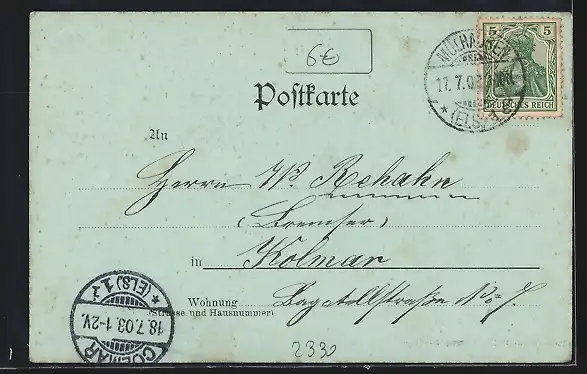 6€
MÜLHAUSEN
17.7.03
* (ELS.)
5 5
DEUTSCHES REICH
Postkarte
An
Herrn W. Rehahn
(Bremser)
in Kolmar
Wohnung Bagatellstraße No 7
(Strasse und Hausnummer)
* (ELS.) 1
18.7.03.1-2V.
COLMAR
2330